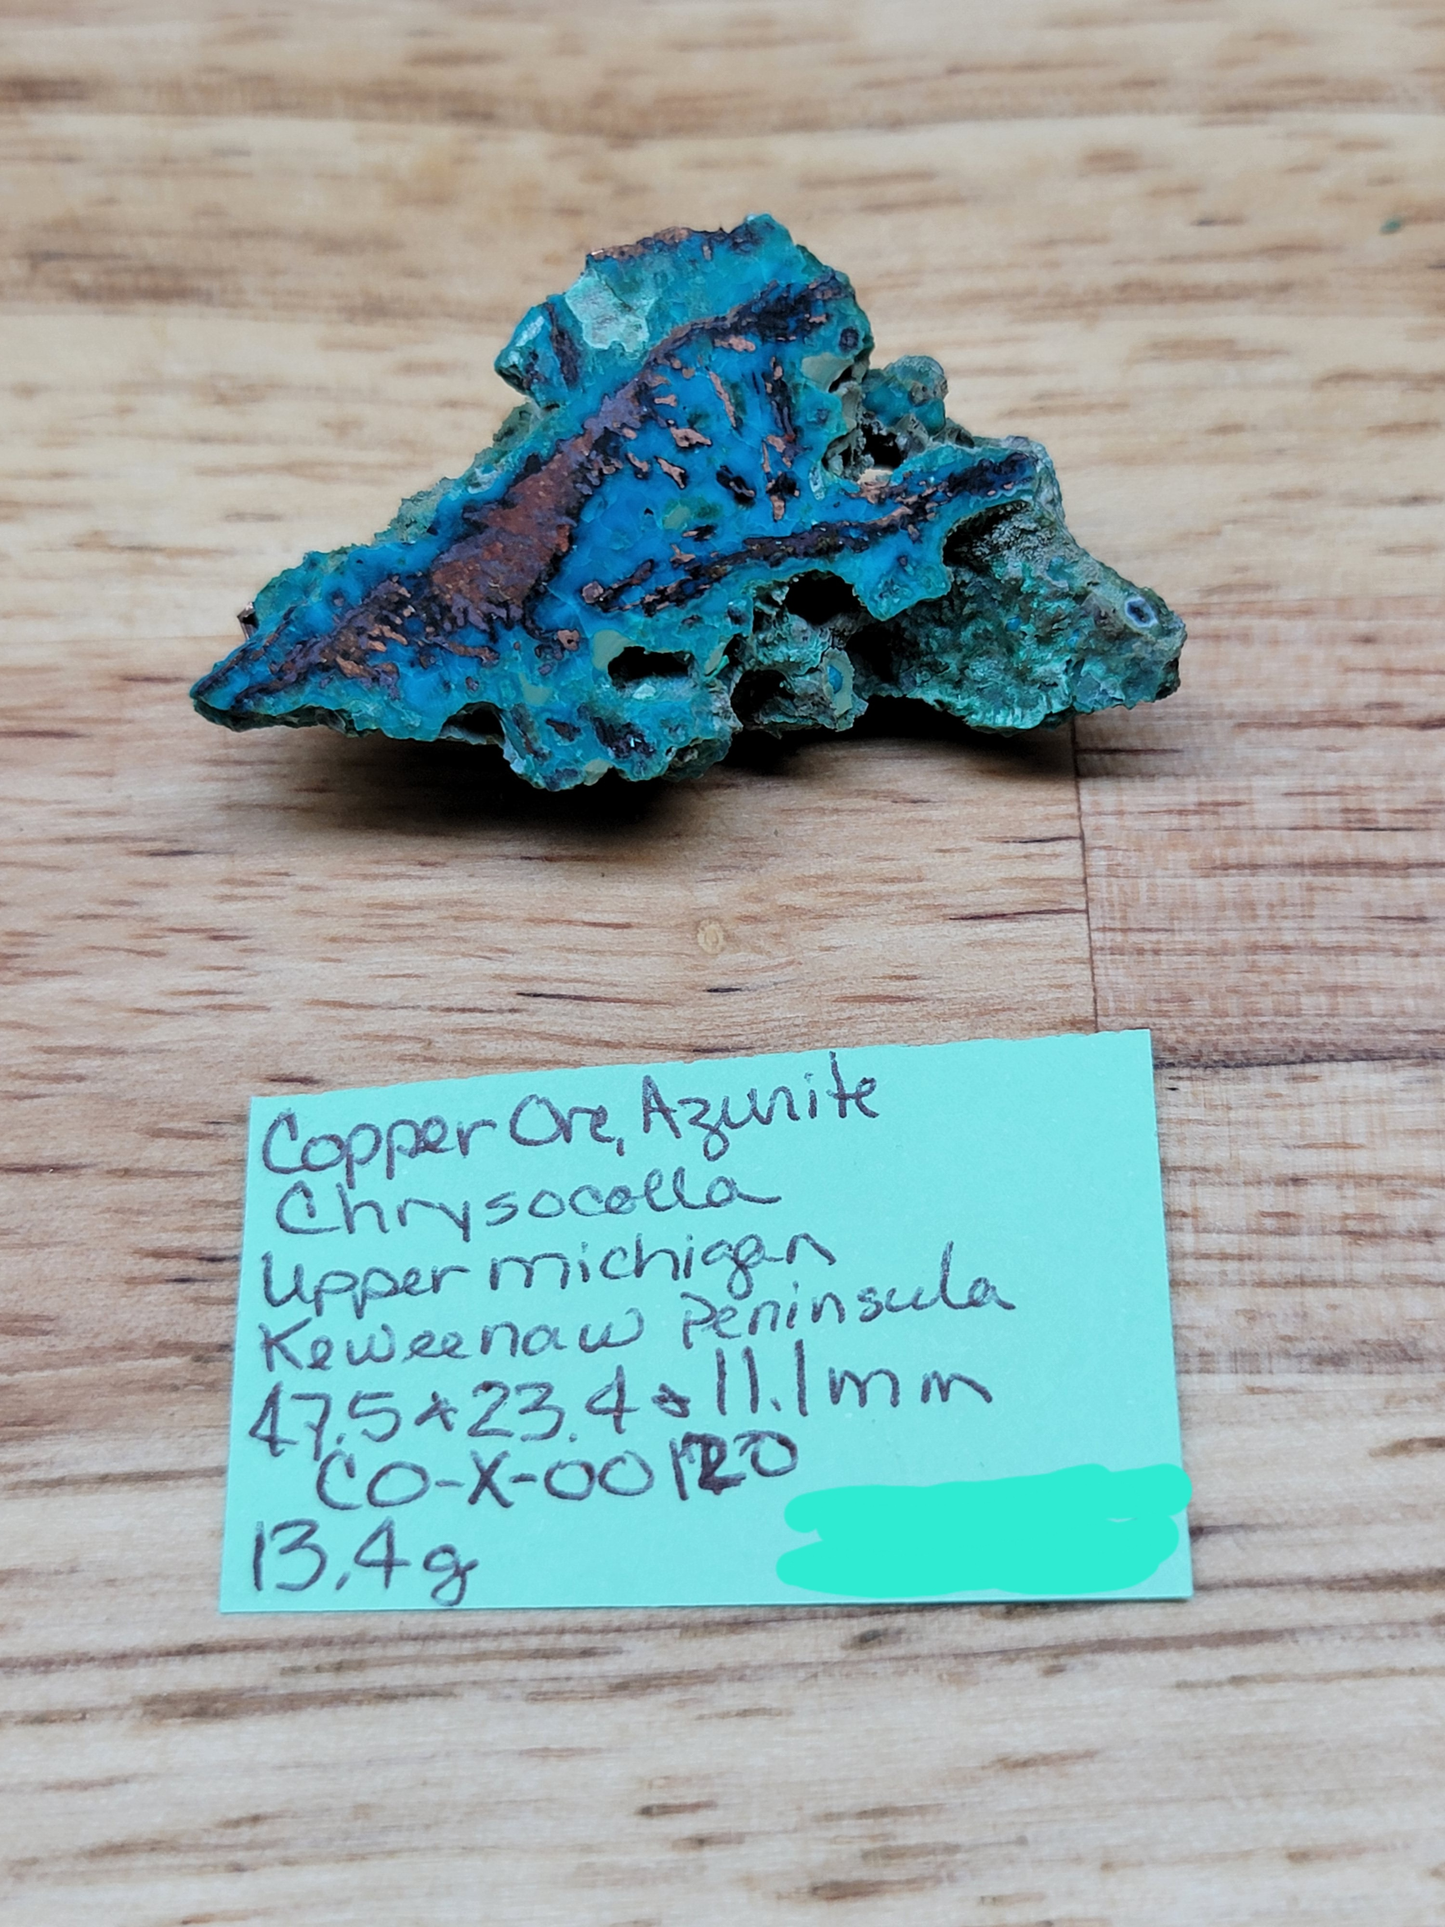 Copper Ore, Azurite
Chrysocolla
Upper michigan
Keweenaw Peninsula
47.5 x 23.4 x 11.1mm
CO-X-00120
13.4g